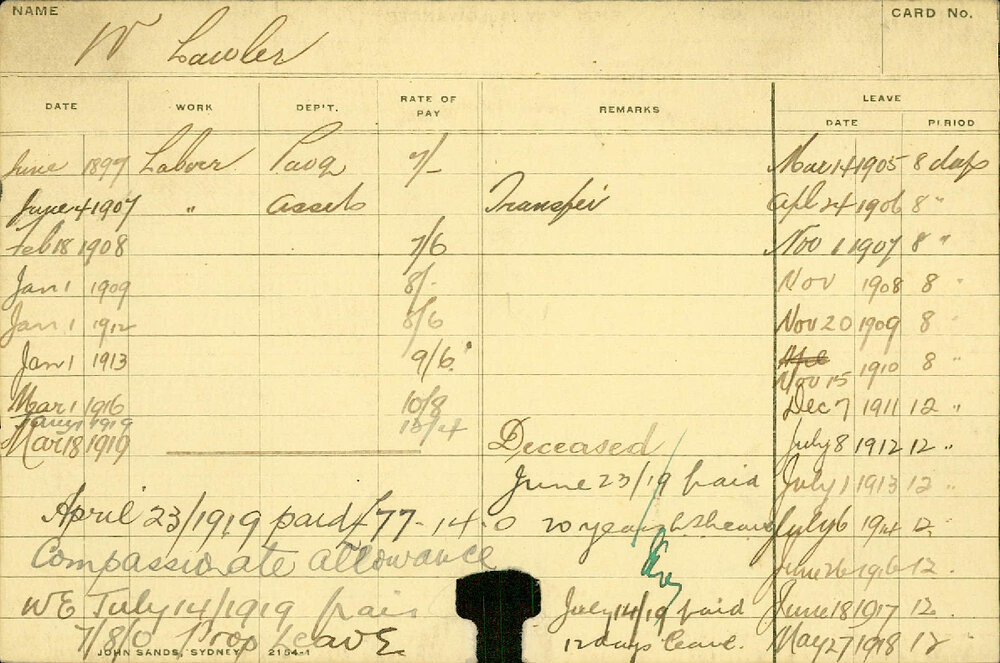 NAME CARD No.
W Lawler
DATE WORK DEP'T. RATE OF PAY REMARKS LEAVE
DATE PERIOD
June 1899 Labover 7/- Mar 14 1905 8 days
June 4 1907 " assets Transfer Apl 24 1906 8 "
Feb 18 1908 7/6 Nov 1 1907 8 "
Jan 1 1909 8/- Nov 1908 8 "
Jan 1 1912 8/6 Nov 20 1909 8 "
Jan 1 1913 9/6 Nov 15 1910 8 "
Mar 1 1916 10/8 Dec 7 1911 12 "
1919
Mar 18 1919 Deceased July 8 1912 12 "
June 23/19 paid July 1 1913 12 "
April 23/1919 paid £77-14-0 20 years July 6 1914 12
Compassionate allowance June 26 1916 12
WE July 14/1919 July 14/19 paid June 18 1917 12
7/8/0 Prop Leave 12 days leave. May 27 1918 12
JOHN SANDS, SYDNEY 2164-1